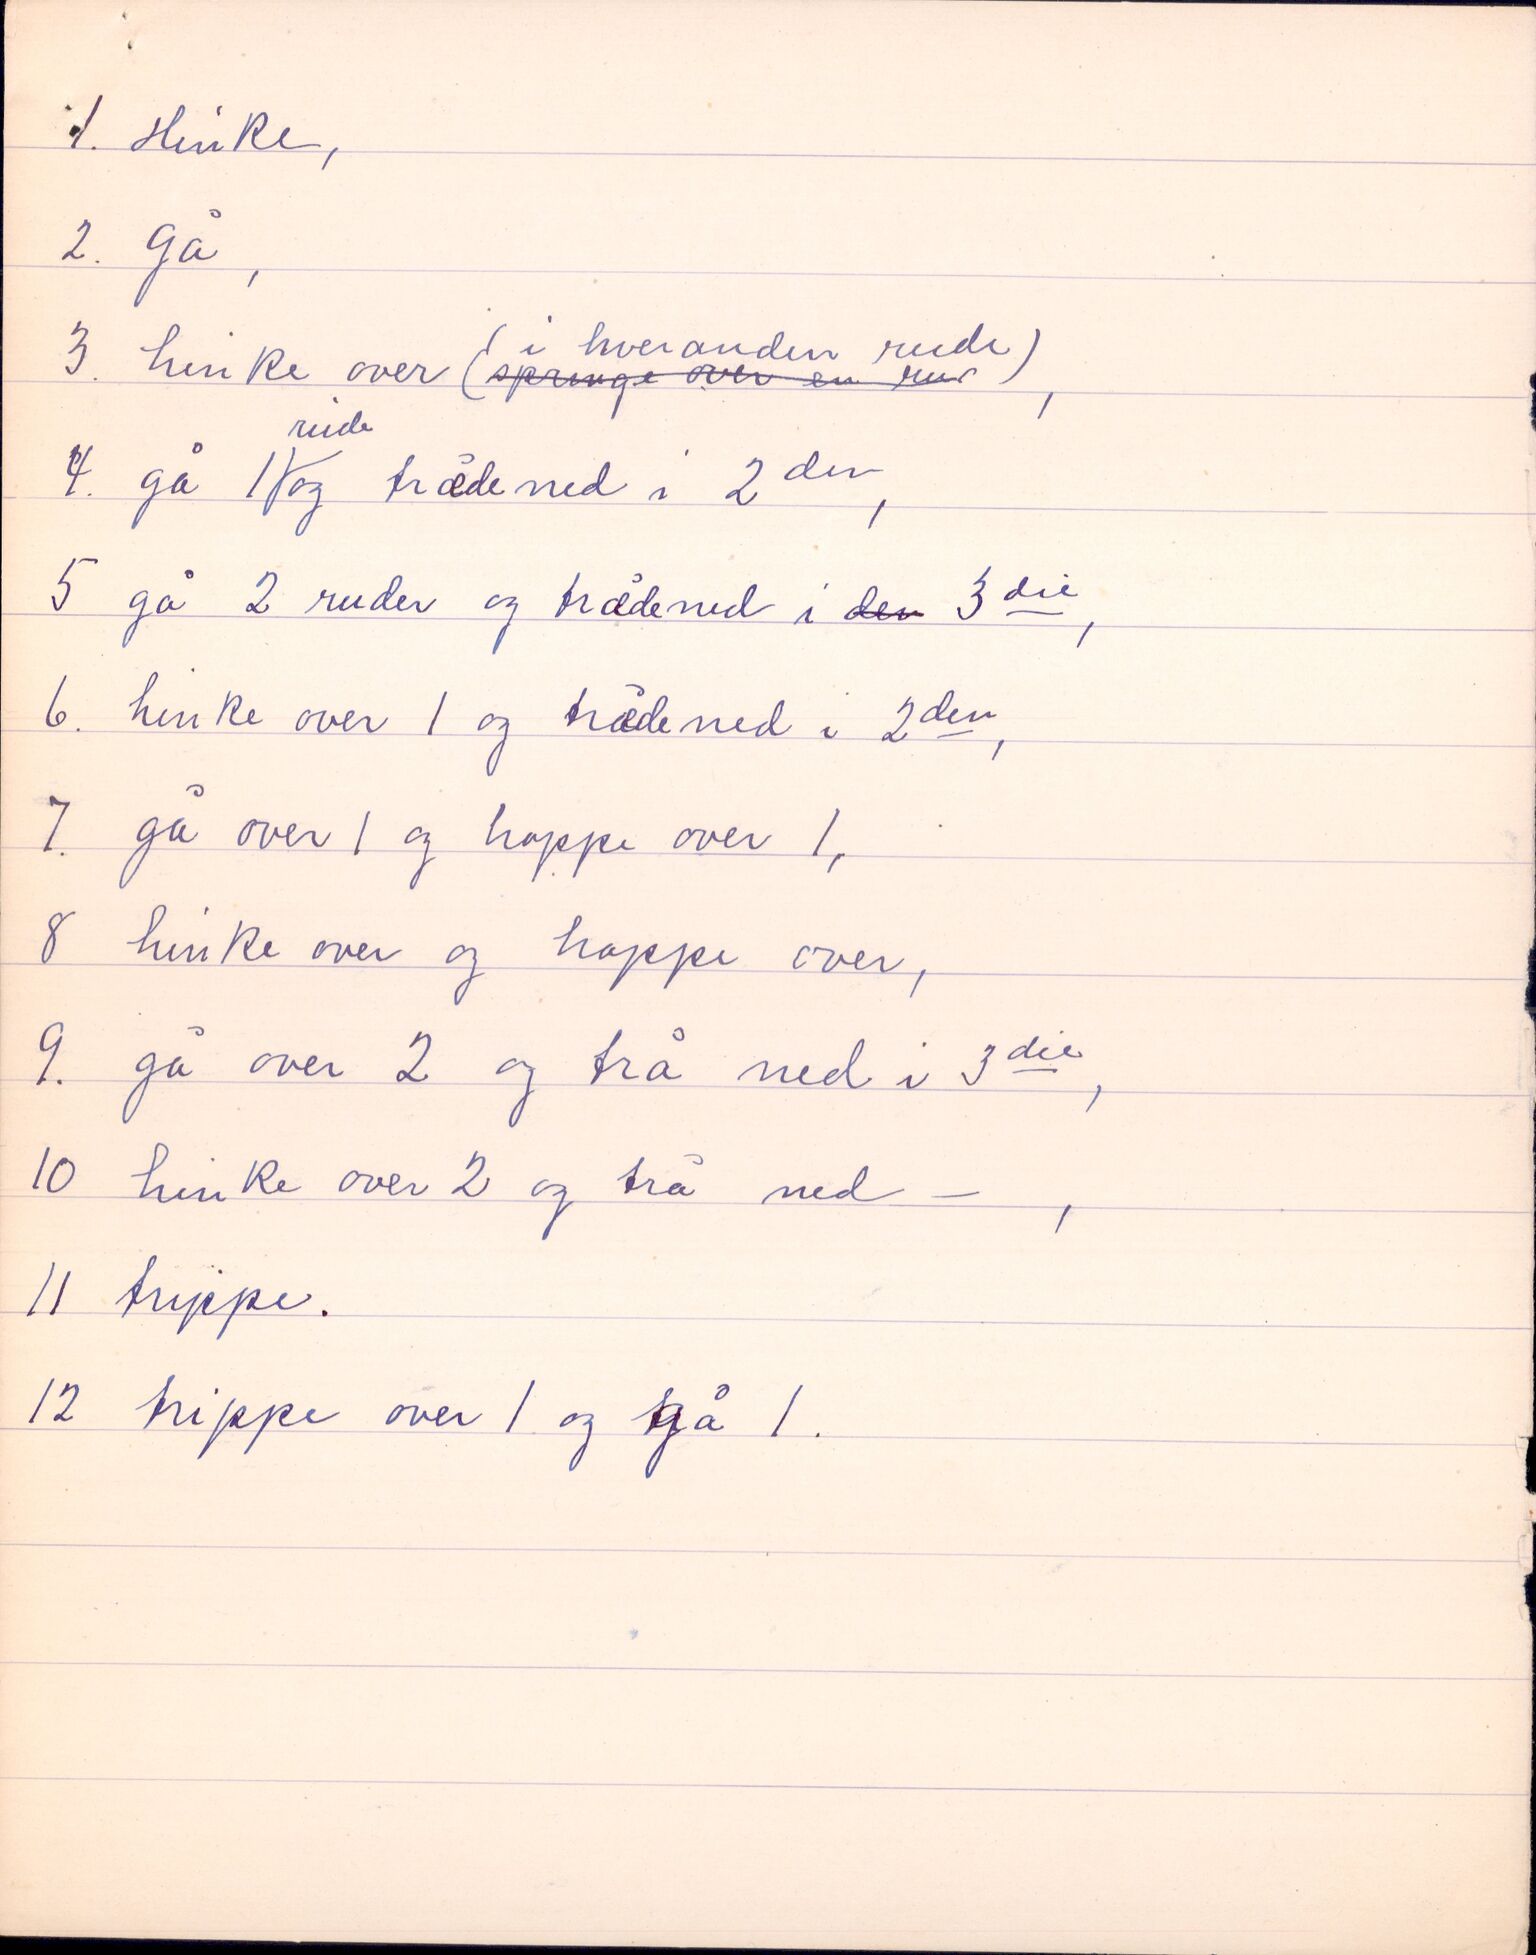 1. Hinke,
2. Gå,
3. hinke over (i hveranden rude),
springe over en rud
4. gå 1 rude og træde ned i 2den,
5 gå 2 ruder og træde ned i den 3die,
6. hinke over 1 og træde ned i 2den,
7. gå over 1 og hoppe over 1,
8 hinke over og hoppe over,
9. gå over 2 og trå ned i 3die,
10 hinke over 2 og trå ned – ,
11 trippe.
12 trippe over 1 og gå 1.